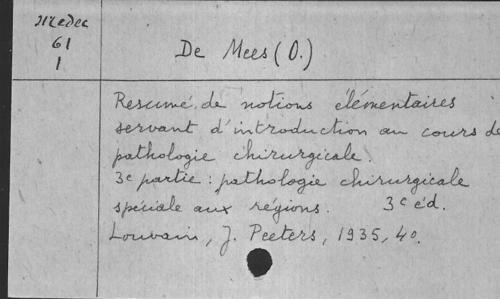 Medec
61
1
De Mees (O.)
Resumé de notions élémentaires
servant d'introduction au cours de
pathologie chirurgicale.
3e partie : pathologie chirurgicale
spéciale aux régions. 3e éd.
Louvain, J. Peeters, 1935, 4o.